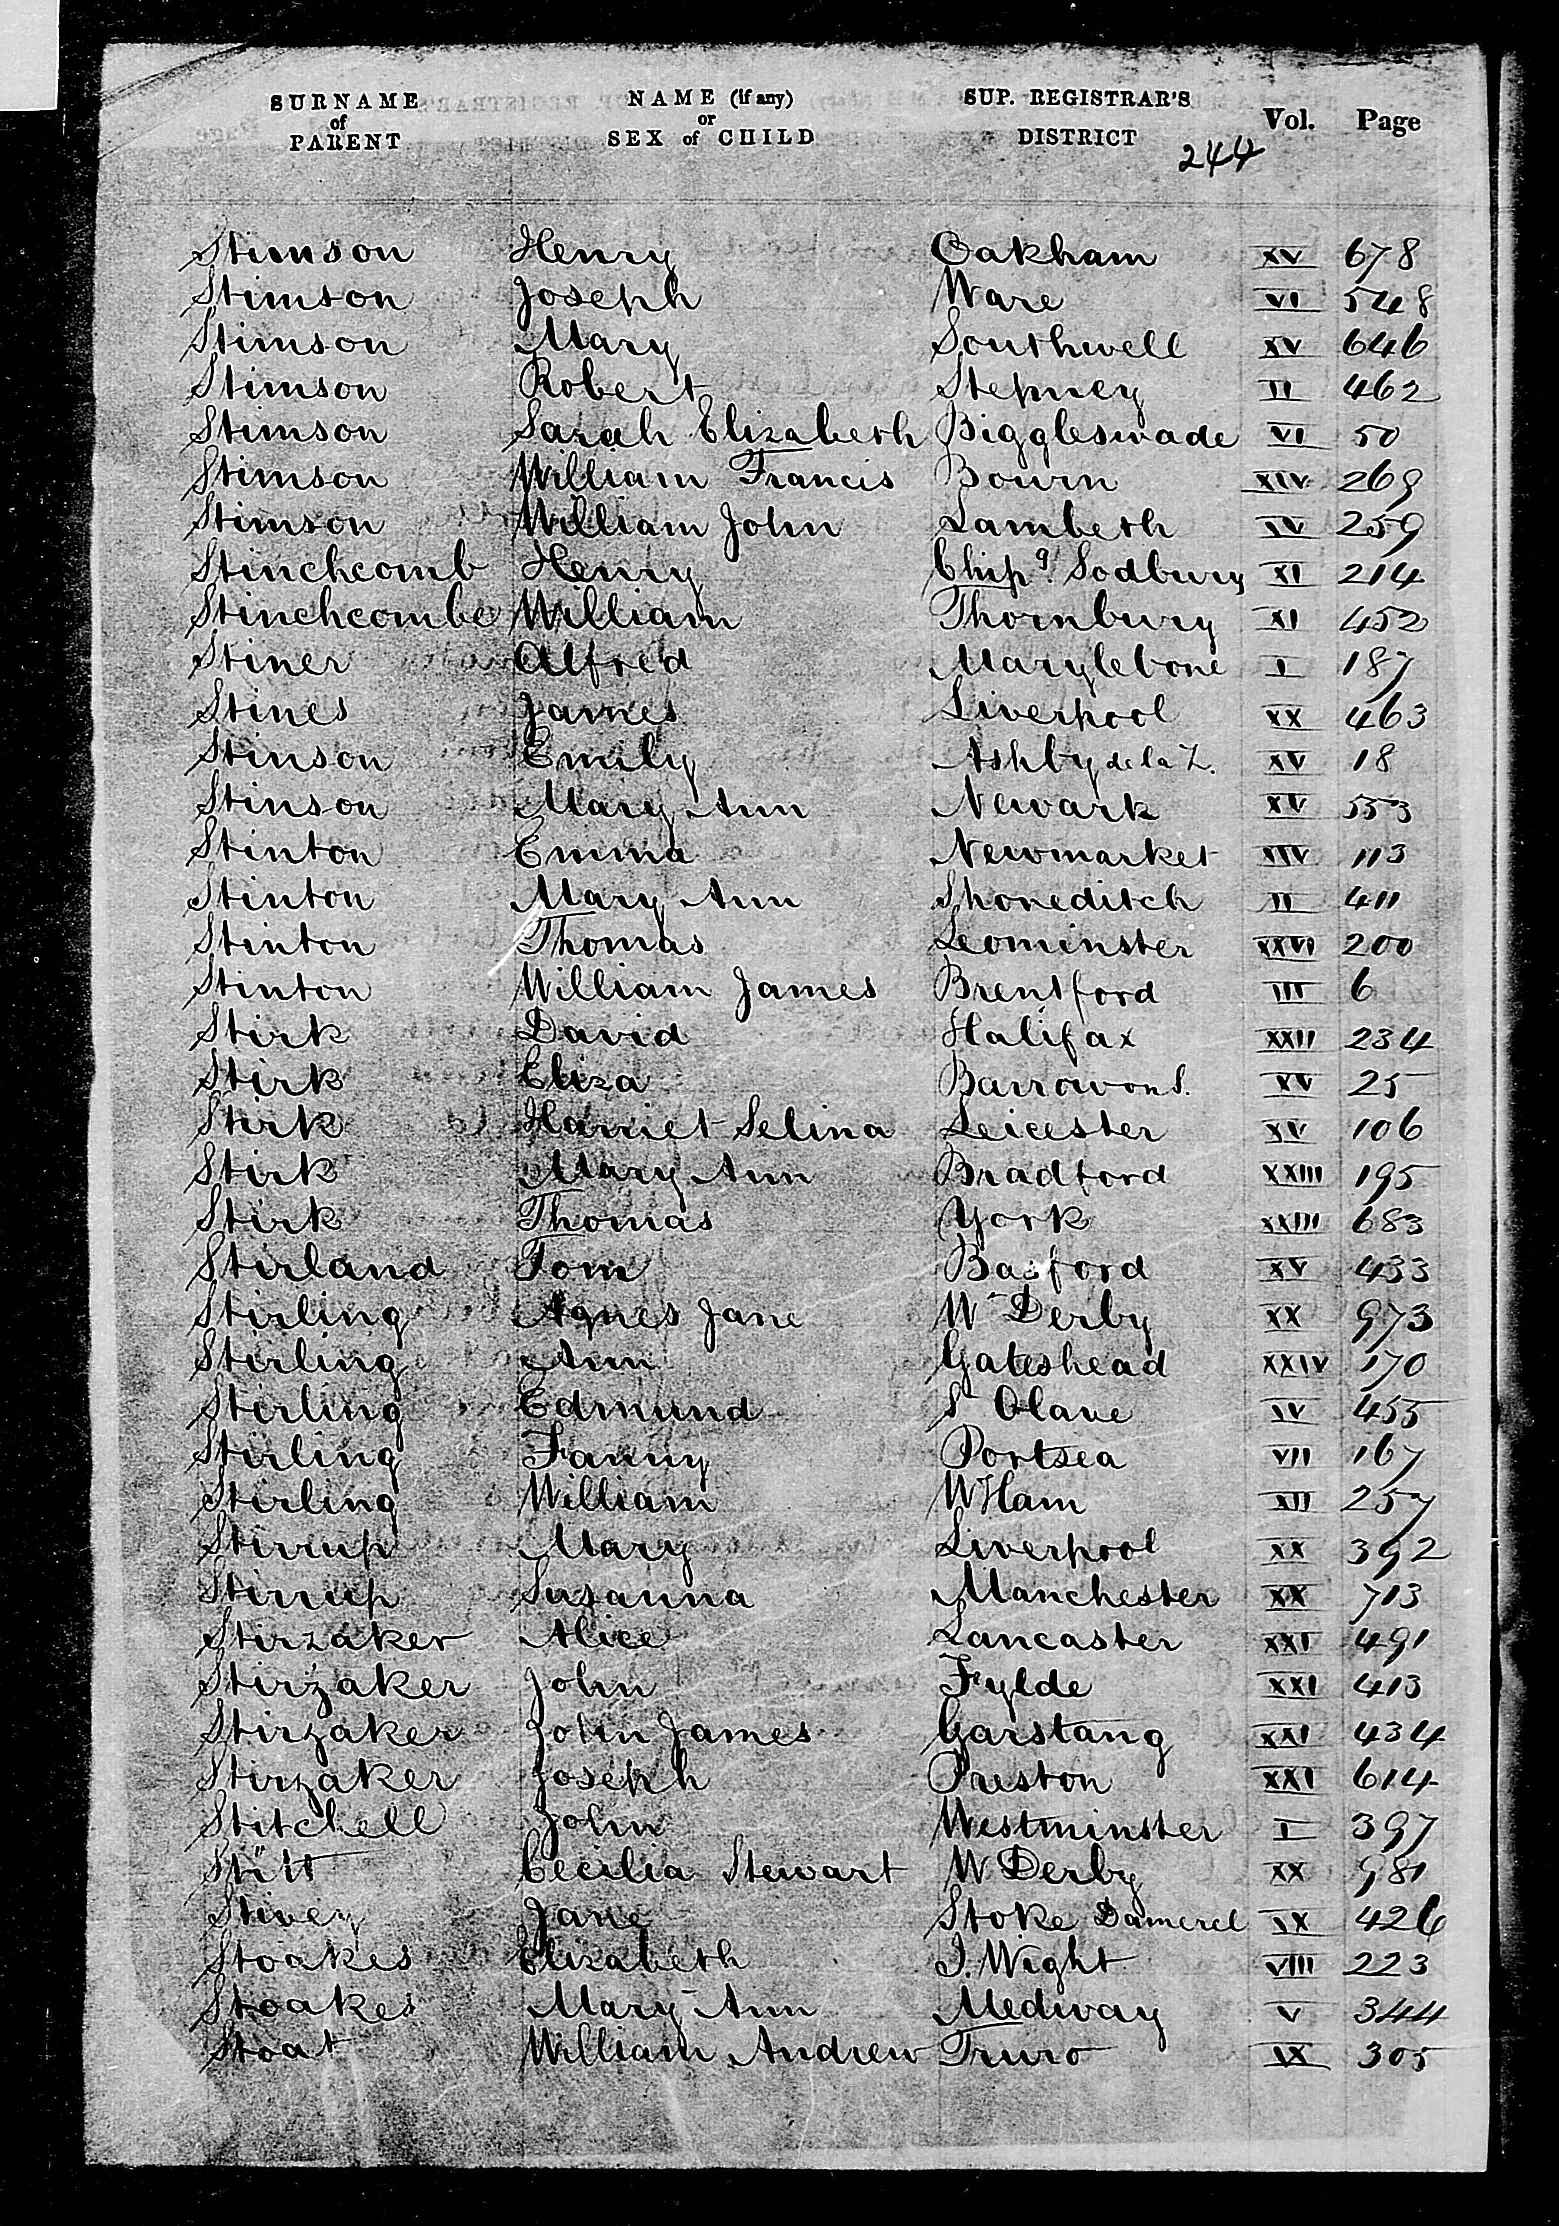 SURNAME of PARENT NAME (if any) or SEX of CHILD SUP. REGISTRAR'S DISTRICT Vol. Page
244
Stimson Henry Oakham XV 678
Stimson Joseph Ware VI 548
Stimson Mary Southwell XV 646
Stimson Robert Stepney II 462
Stimson Sarah Elizabeth Biggleswade VI 50
Stimson William Francis Bourn XIV 269
Stimson William John Lambeth IV 259
Stinchcomb Henry Chipg. Sodbury XI 214
Stinchcombe William Thornbury XI 452
Stiner Alfred Marylebone I 187
Stines James Liverpool XX 463
Stinson Emily Ashby de la Z. XV 18
Stinson Mary Ann Newark XV 553
Stinton Emma Newmarket XIV 113
Stinton Mary Ann Shoreditch II 411
Stinton Thomas Leominster XXVI 200
Stinton William James Brentford III 6
Stirk David Halifax XXII 234
Stirk Eliza Barrow on S. XV 25
Stirk Harriet Selina Leicester XV 106
Stirk Mary Ann Bradford XXIII 195
Stirk Thomas York XXIII 683
Stirland Tom Basford XV 433
Stirling Agnes Jane W Derby XX 973
Stirling Ann Gateshead XXIV 170
Stirling Edmund St Olave IV 455
Stirling Fanny Portsea VII 167
Stirling William W Ham XII 257
Stirrup Mary Liverpool XX 392
Stirrup Susanna Manchester XX 713
Stirzaker Alice Lancaster XXI 491
Stirzaker John Fylde XXI 413
Stirzaker John James Garstang XXI 434
Stirzaker Joseph Preston XXI 614
Stitchell John Westminster I 397
Stitt Cecilia Stewart W Derby XX 981
Stivey Jane Stoke Damerel IX 426
Stoakes Elizabeth I. Wight VIII 223
Stoakes Mary Ann Medway V 344
Stoat William Andrew Truro IX 305